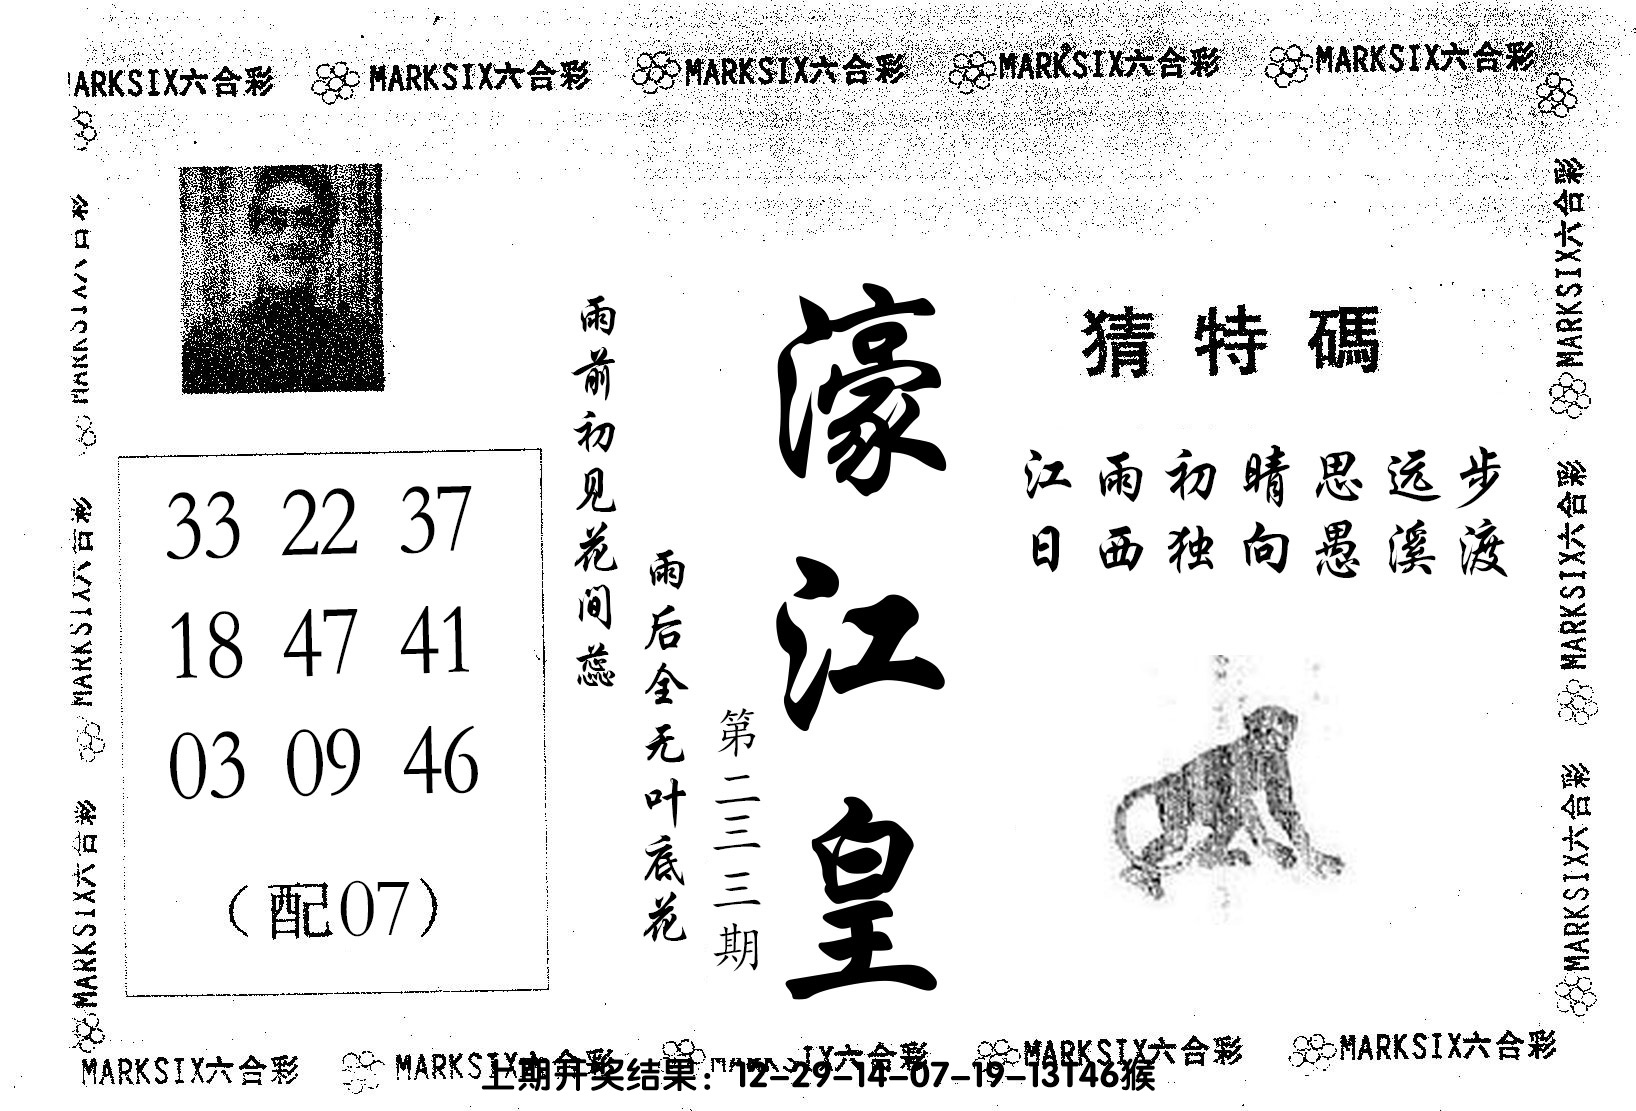 MARKSIX六合彩 MARKSIX六合彩 MARKSIX六合彩 MARKSIX六合彩
猜特碼
江雨初晴思远步
日西独向愚溪渡
濠江皇
第二三三期
雨前初见花间蕊
雨后全无叶底花
33 22 37
18 47 41
03 09 46
（配07）
MARKSIX六合彩
MARKSIX六合彩
MARKSIX六合彩
MARKSIX六合彩
MARKSIX六合彩
MARKSIX六合彩 MARKSIX六合彩 MARKSIX六合彩 MARKSIX六合彩
上期开奖结果：12-29-14-07-19-13T46猴